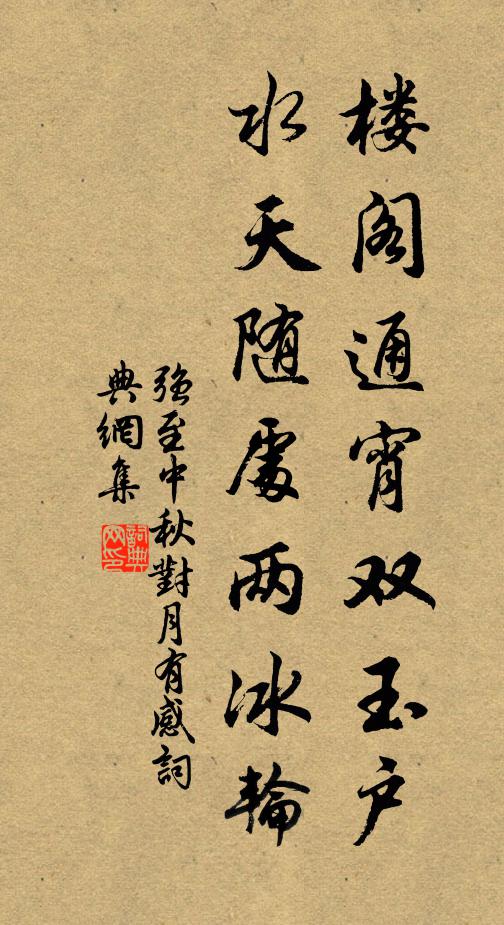 楼阁通宵双玉户
水天随處两冰輪
强至中秋對月有感詞
典網集
詞典网印